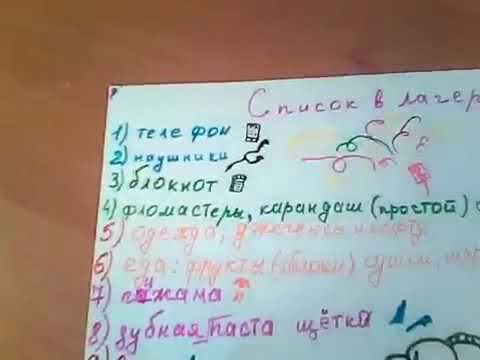 Список в лагер
1) телефон
2) наушники
3) блокнот
4) фломастеры, карандаш (простой)
5) одежда, джинсы
6) еда: фрукты (яблоки) сушки,
7) пижама
8) зубная паста щётка